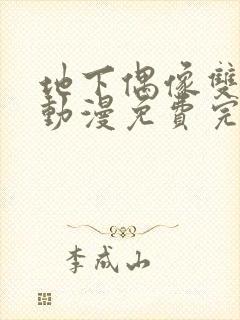 地下偶像雙
動漫免費完
李成山